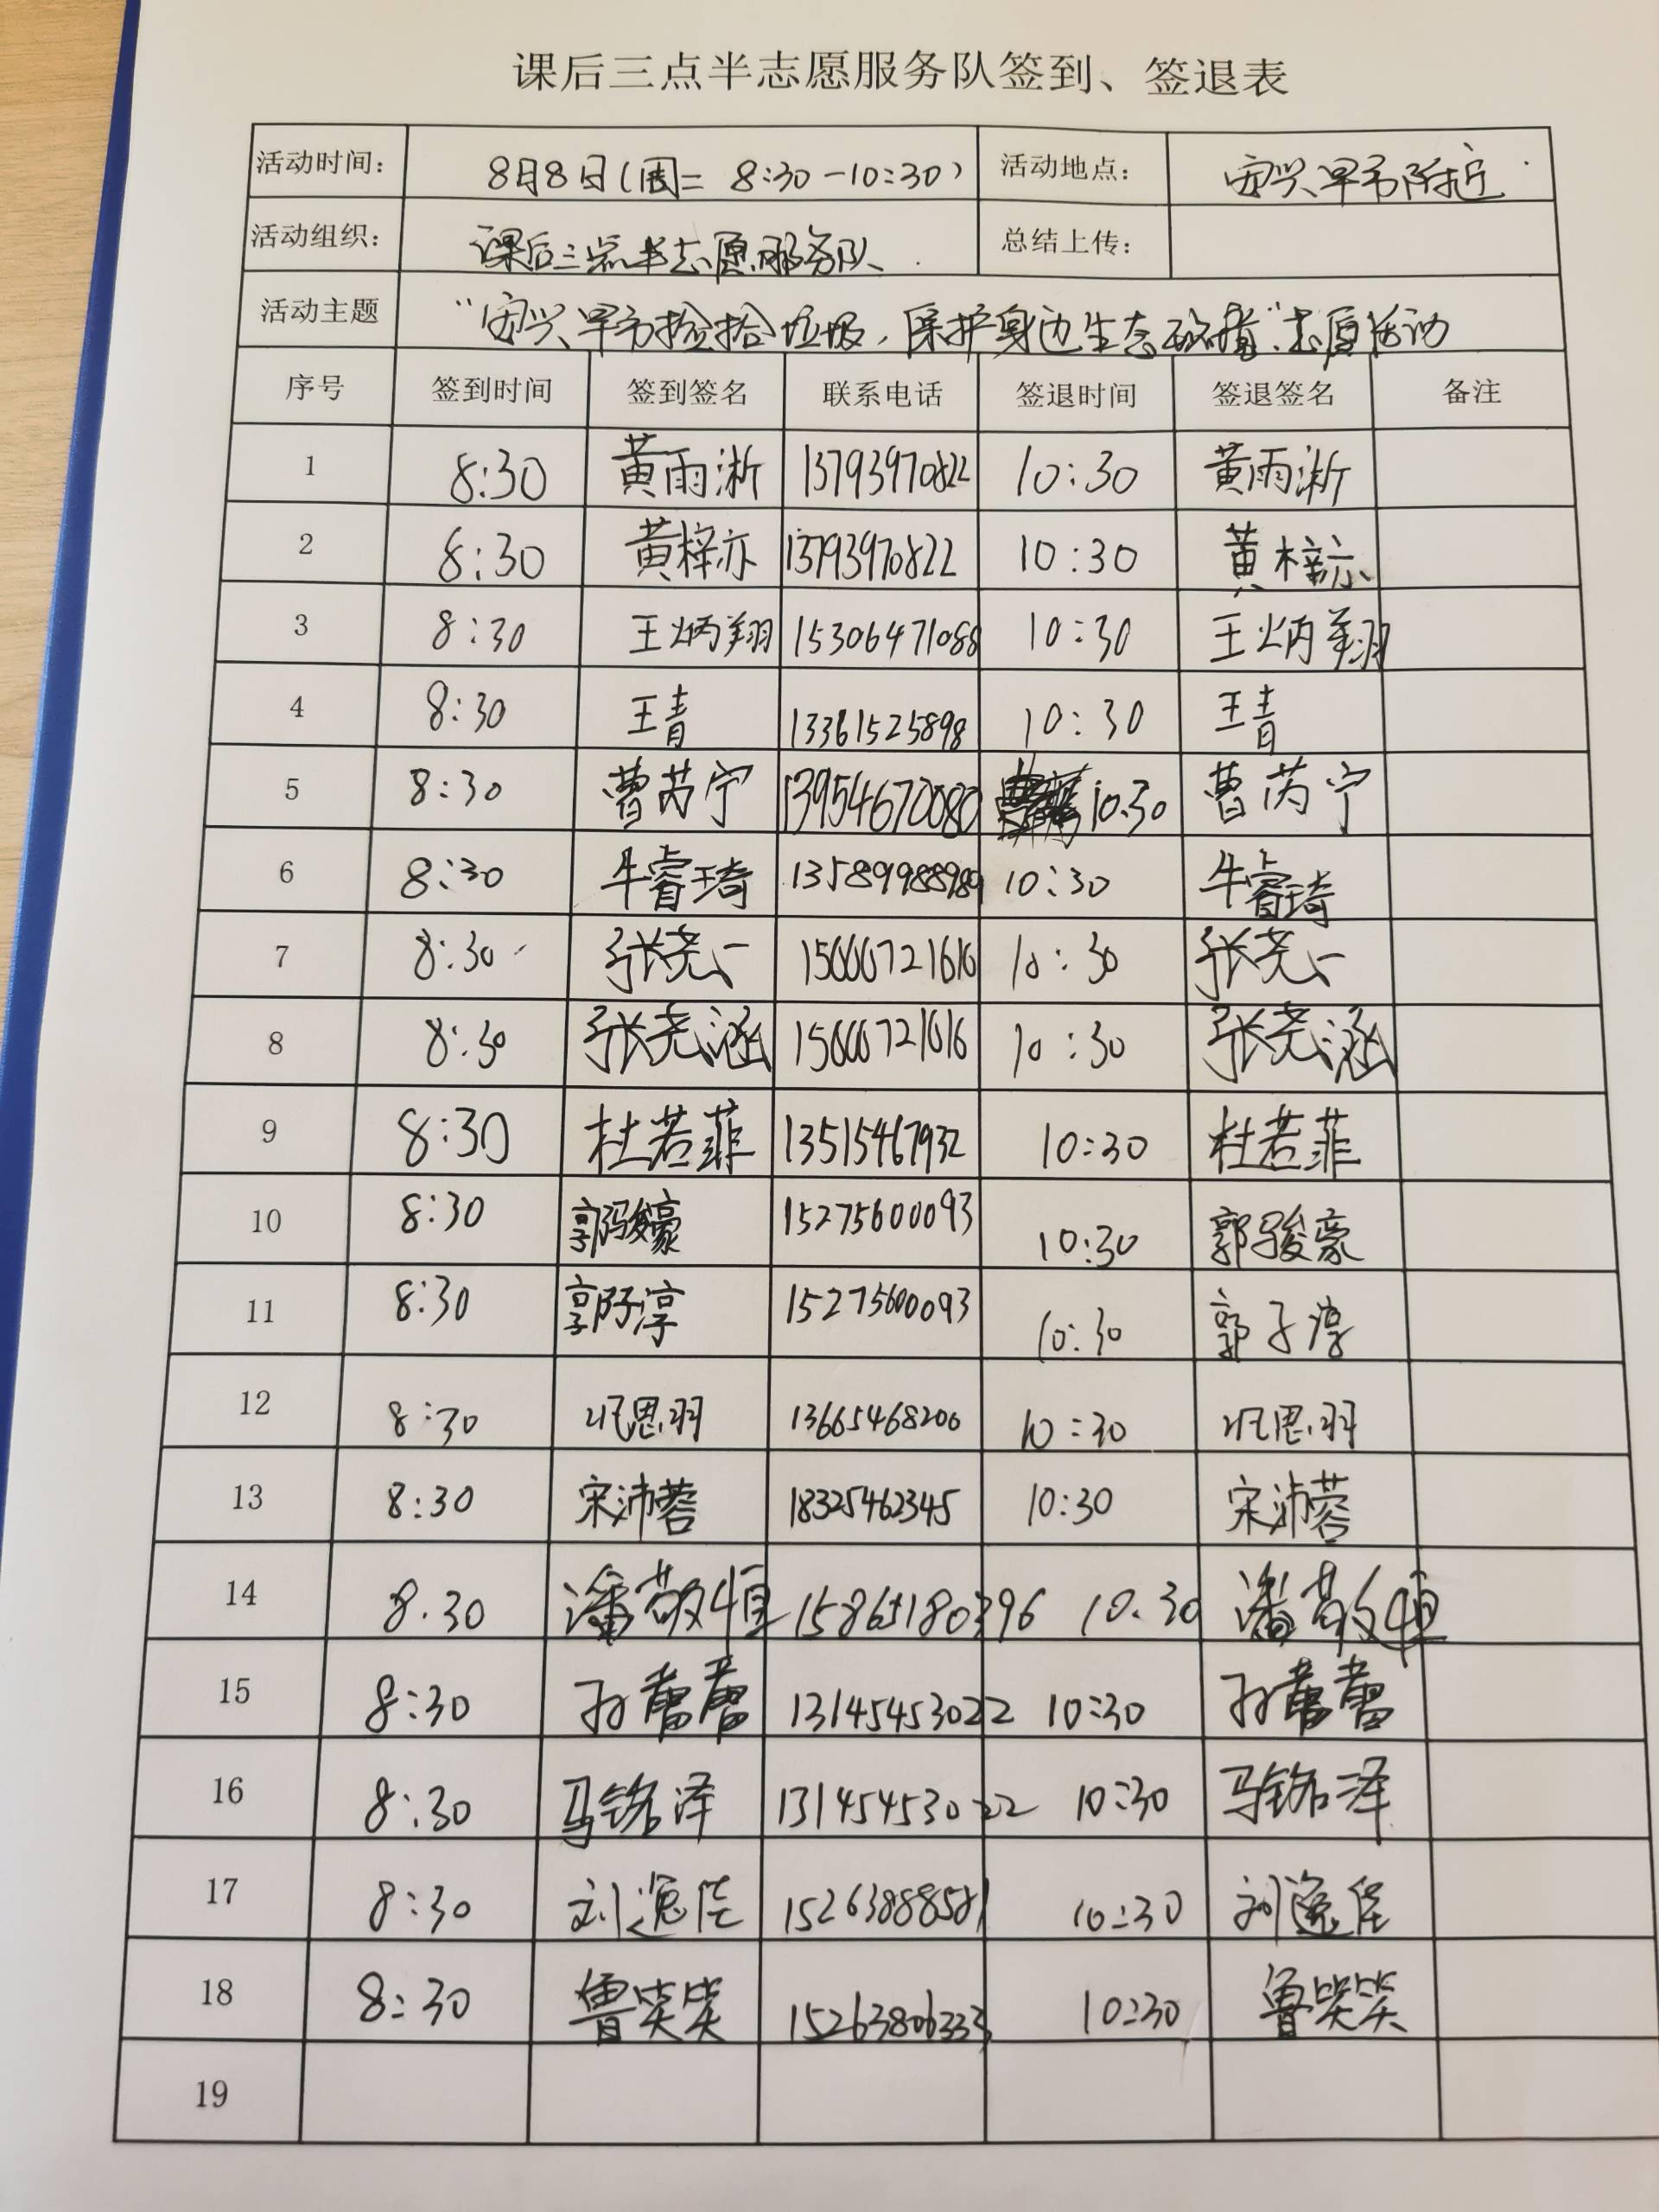 课后三点半志愿服务队签到、签退表
活动时间： 8月8日(周二 8:30-10:30) 活动地点： 安兴早市附近
活动组织： 课后三点半志愿服务队 总结上传：
活动主题 “安兴早市捡拾垃圾，保护身边生态”志愿活动
序号 签到时间 签到签名 联系电话 签退时间 签退签名 备注
1 8:30 黄雨淅 13793970822 10:30 黄雨淅
2 8:30 黄梓亦 13793970822 10:30 黄梓亦
3 8:30 王炳翔 15306471088 10:30 王炳翔
4 8:30 王青 13361525898 10:30 王青
5 8:30 曹芮宁 13954670080 10.30 曹芮宁
6 8:30 牛睿琦 13589988989 10:30 牛睿琦
7 8:30 张尧 10:30 张尧
8 8:30 张尧涵 10:30 张尧涵
9 8:30 杜若菲 13515467932 10:30 杜若菲
10 8:30 郭骏豪 15275600093 10:30 郭骏豪
11 8:30 郭子淳 15275600093 10:30 郭子淳
12 8:30 思羽 13665468200 10:30 思羽
13 8:30 宋沛蓉 18325462345 10:30 宋沛蓉
14 8.30 潘敬恒 15865180396 10.30 潘敬恒
15 8:30 孙蕾蕾 13145453022 10:30 孙蕾蕾
16 8:30 马铭泽 13145453022 10:30 马铭泽
17 8:30 刘逸佳 15263888581 10:30 刘逸佳
18 8:30 鲁笑笑 15263806333 10:30 鲁笑笑
19